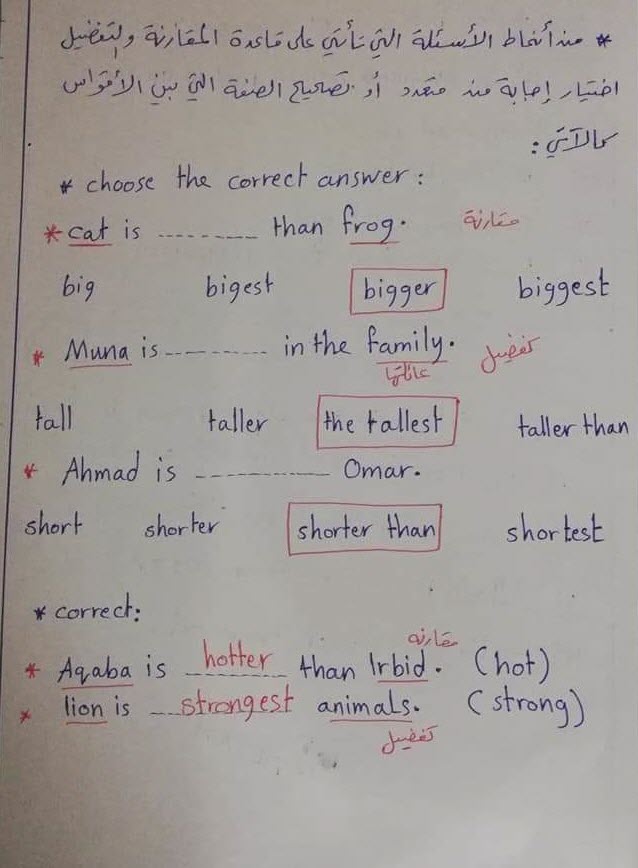 * من أنماط الأسئلة التي تأتي على قاعدة المقارنة والتفضيل
اختيار إجابة من متعدد أو تصحيح الصفة التي بين الأقواس
كالآتي:
* choose the correct answer:
* cat is ---------- than frog. مقارنة
big bigest bigger biggest
* Muna is ---------- in the family. تفضيل
عائلتها
tall taller the tallest taller than
* Ahmad is ------------- Omar.
short shorter shorter than shortest
* correct:
مقارنه
* Aqaba is hotter than Irbid. (hot)
* lion is strongest animals. (strong)
تفضيل